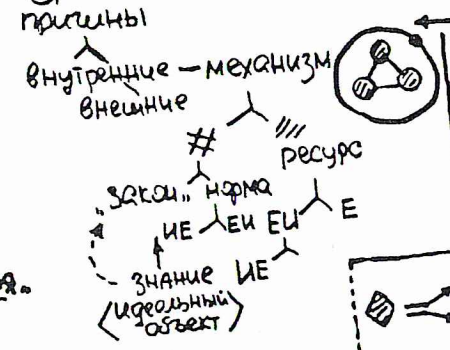 причины
внутренние — механизм
внешние
#
ресурс
"закон" норма
ИЕ ЕИ ЕИ Е
знание ИЕ
я"
(идеальный
объект)